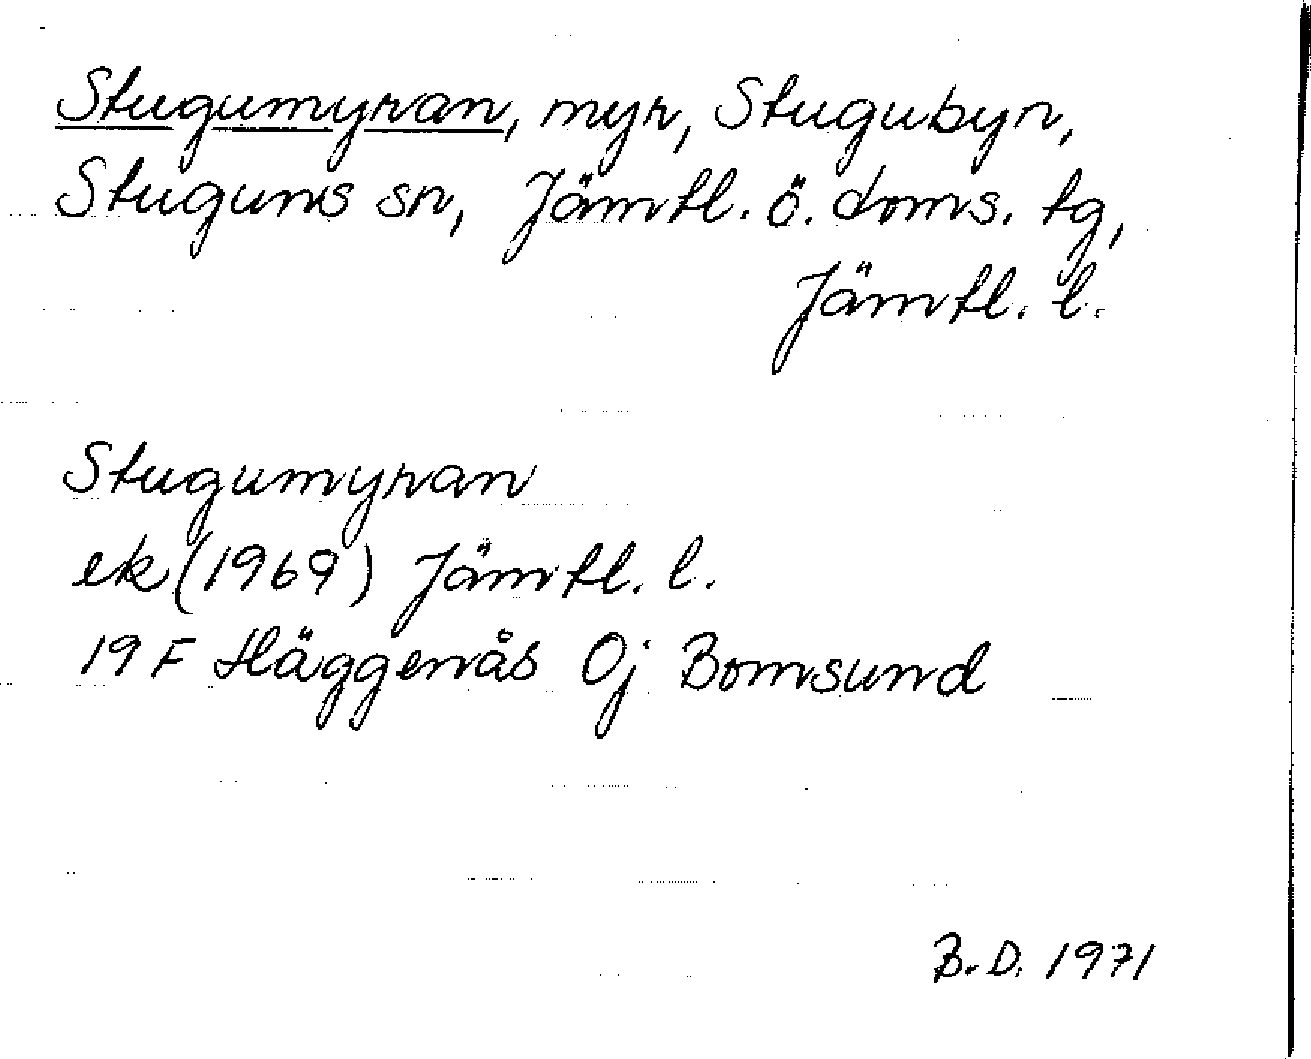 Stugumyran, myr, Stugubyn,
Stuguns sn, Jämtl. ö. doms. tg,
Jämtl. l.
Stugumyran
ek (1969) Jämtl. l.
19 F Häggenås 0j Bomsund
B.D. 1971